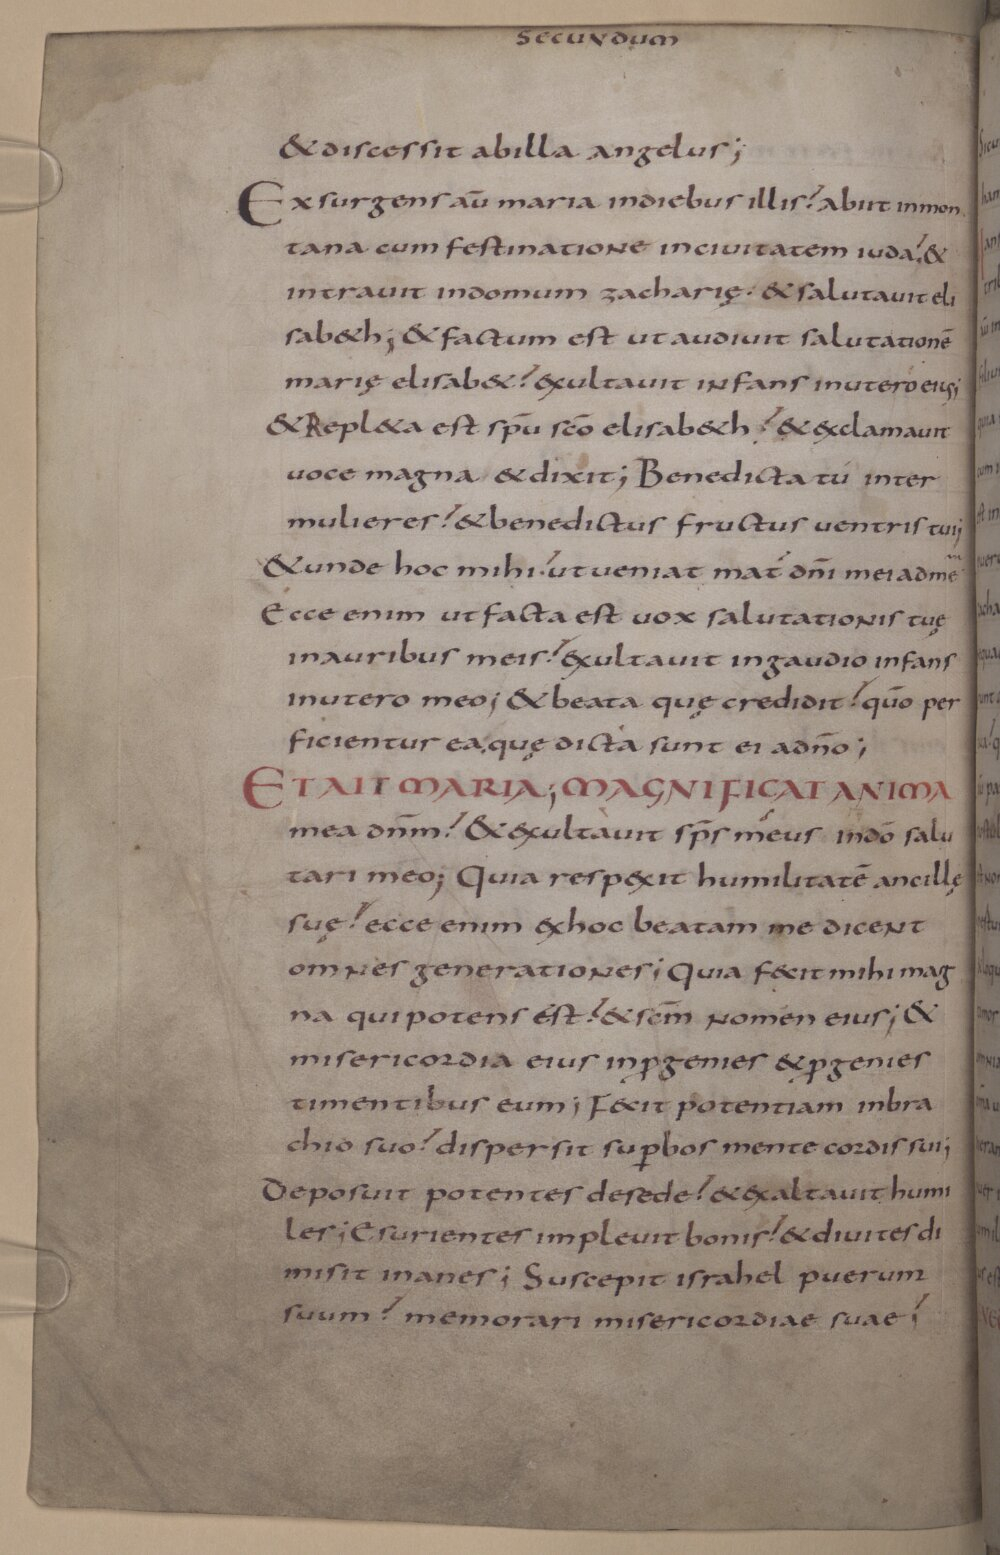 secundum
& discessit ab illa angelus;
Exsurgens aū maria in diebus illis? abiit in mon
tana cum festinatione in ciuitatem iuda? &
intrauit in domum zacharię. & salutauit eli
sab&h; & factum est ut audiuit salutationē
marię elisab&? exultauit infans in utero eius;
& Repl&a est spū scō elisab&h? & exclamauit
uoce magna & dixit; Benedicta tú inter
mulieres? & benedictus fructus uentris tui;
& unde hoc mihi? ut ueniat mat̄ dn̄i mei ad mē
Ecce enim ut facta est uox salutationis tuę
in auribus meis? exultauit in gaudio infans
in utero meo; & beata quę credidit? qūo per
ficientur ea, quę dicta sunt ei a dn̄o;
ET AIT MARIA; MAGNIFICAT ANIMA
mea dn̄m? & exultauit sp̄s meus in dō salu
tari meo; Quia respexit humilitatē ancillę
suę? ecce enim ex hoc beatam me dicent
omnes generationes; Quia fecit mihi mag
na qui potens ést? & scm̄ nomen eius; &
misericordia eius in ꝓgenies & ꝓgenies
timentibus eum; Fecit potentiam in bra
chio suo? dispersit suꝑbos mente cordis sui;
Deposuit potentes de sede? & exaltauit humi
les; Esurientes impleuit bonis? & diuites di
misit inanes; Suscepit israhel puerum
suum? memorari misericordiae suae;